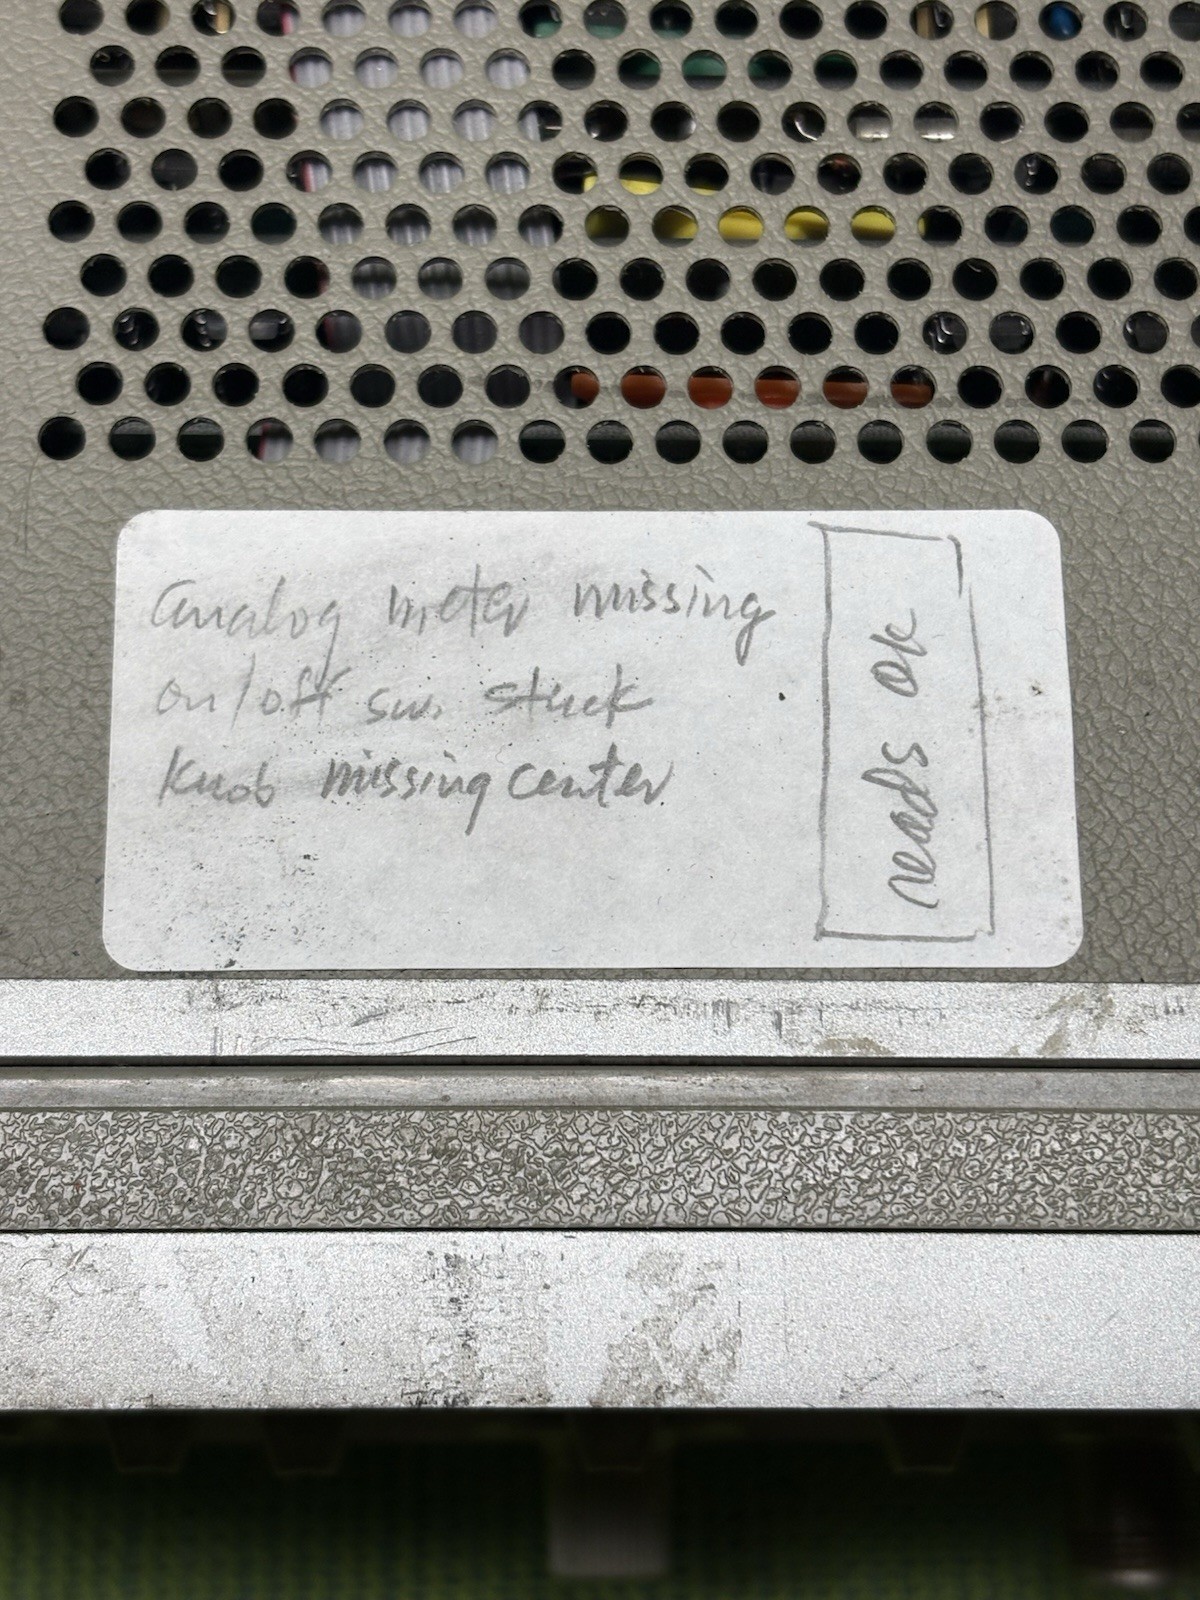 analog meter missing
on/off sw. stuck
knob missing center
reads ok